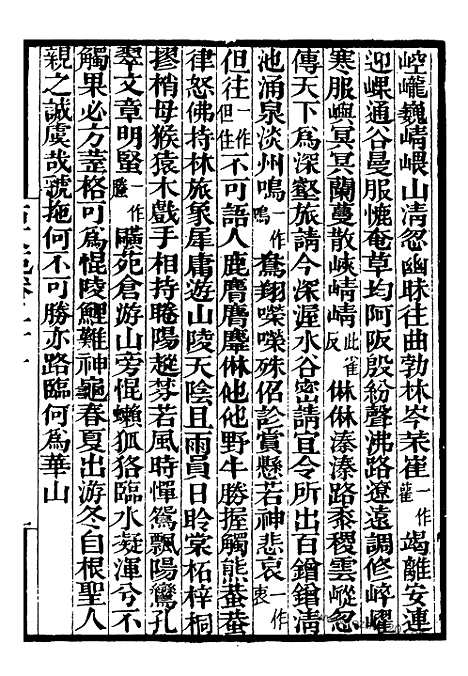 崆巄巍崝嵔山清忽幽昧往曲勃林岑茱崔一作嶉竭離安連
迎㟮通谷曼服㦃奄草均阿阪殷紛聲沸路遼遠調修崪嵯
寒服嶼冥冥蘭蔓散峽崝崝此雀反㑣㑣溱溱路黍稷雲嵷忽
傳天下為深壑旅請今深渥水谷密請宜令所出百鎗鎗清
池涌泉淡州鳴一作鳴鶩翔嘄嘄殊佋診賞懸若神悲哀一作衷
但往一作但住不可語人鹿麕麕麈㑣他他野牛勝握觸熊蚕蚕
律怒佛持林旅象犀庸遊山陵天陰且雨員日聆棠柘梓桐
摎梢母猴猿木戲手相持睠陽蹝芬若風時憚鴛飄陽鸞孔
翠文章明堅一作黶曠苑倉游山旁惃獺狐狢臨水凝渾兮不
觸果必方薹格可為惃陵鯉難神龜春夏出游冬自根聖人
親之誠虞哉號拖何不可勝亦路臨何為華山